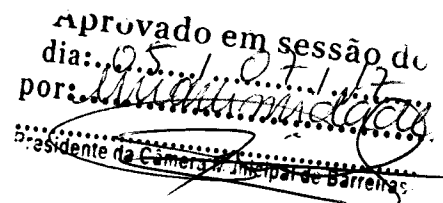 Aprovado em sessão do
dia: 05 / 07 / 17
por: Unanimidade
Presidente da Câmera Municipal de Barreiras